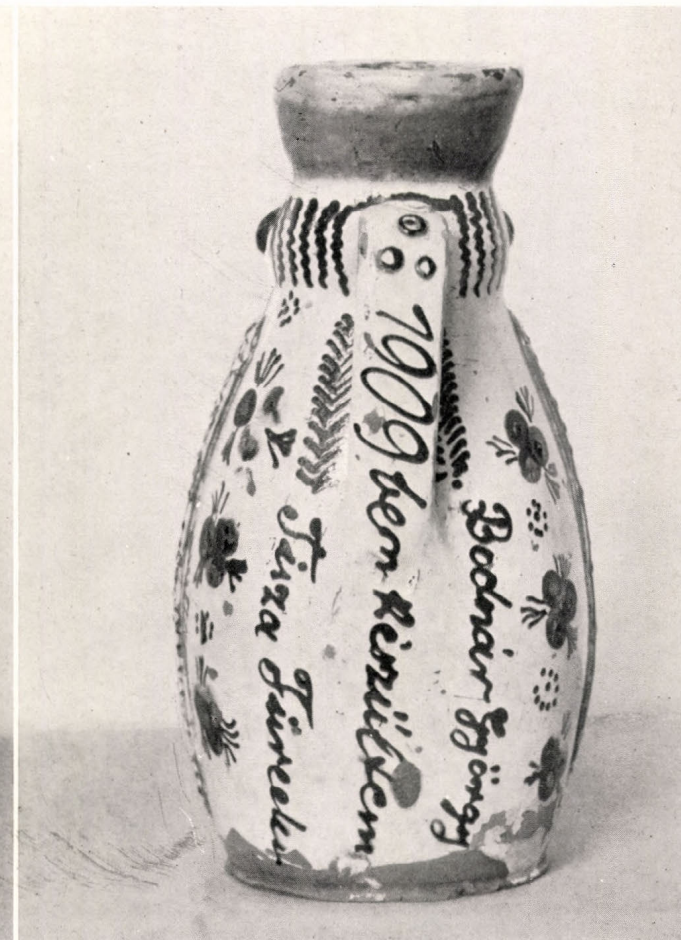 Bodnár György
1909 ben Készültem
Tisza